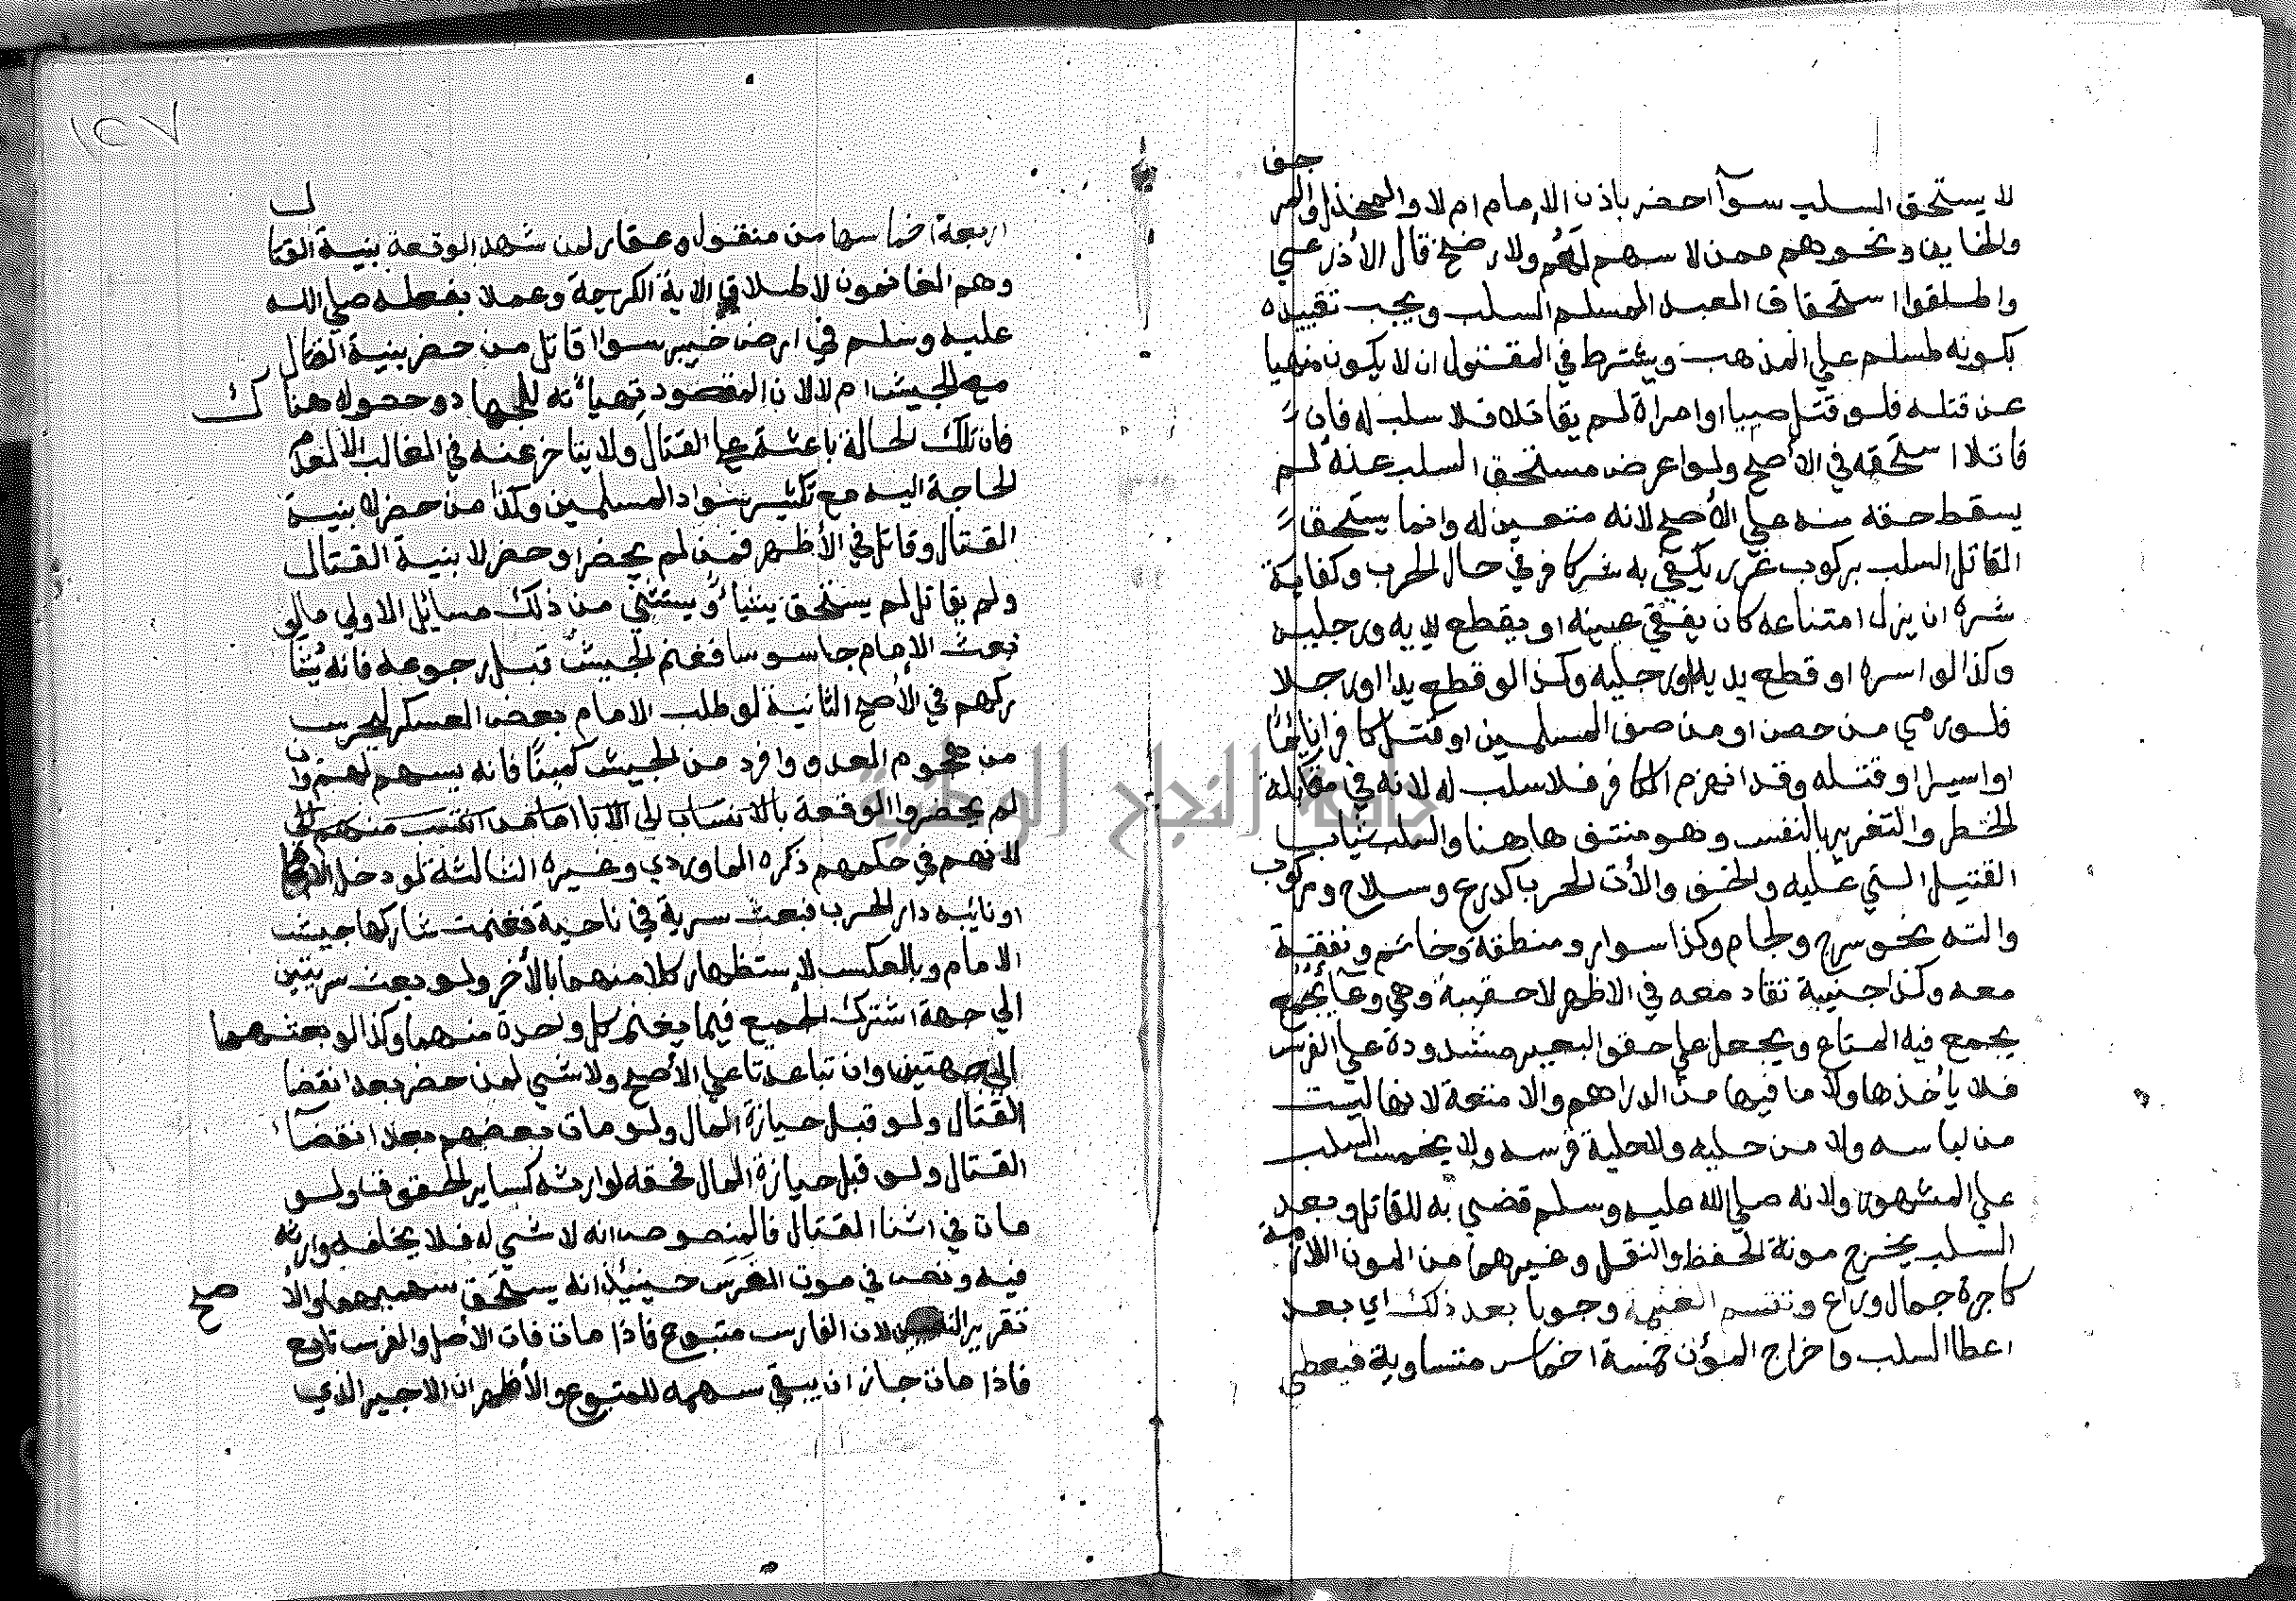 لا يستحق السلب سوآ احضر باذن الامام ام لا والمخذل والمر
جف
والخاين ونحوهم ممن لا سهم لهم ولا رضخ قال الأذرعي
واطلقوا استحقاق العبد المسلم السلب ويجب تقييده
بكونه لمسلم علي المذهب ويشترط في المقتول ان لا يكون منهيا
عن قتله فلو قتل صبيا او امراة لم يقاتلا فلا سلب له فان
قاتلا استحقه في الأصح ولو اعرض مستحق السلب عنه لم
يسقط حقه منه علي الأصح لانه متعين له وانما يستحق
القاتل السلب بركوب غرر يكفي به شر كافر في حال الحرب وكفاية
شره ان يزل امتناعه كان يفقي عينيه او يقطع يديه ورجليه
وكذا لو اسره او قطع يديه اورجليه وكذا لو قطع يدا اورجلا
فلو رمي من حصن او من صف المسلمين او قتل كافرا نايما
او اسيرا او قتله وقد انهزم الكافر فلا سلب له لانه في مقابلة
الخطر والتغرير بالنفس وهو منتف هاهنا والسلب ثياب
القتيل التي عليه والخف والأت الحرب كدرع وسلاح ومركوب
والته نحو سرج ولجام وكذا سوار ومنطقة وخاتم ونفقة
معه وكذا جنيبة تقاد معه في الاظهر لا حقيبة وهي وعآ يجمع
يجمع فيه المتاع ويجعل علي حقو البعير مشدودة علي الفرس
فلا يأخذها ولا ما فيها من الدراهم والامتعة لانها ليست
من لباسه ولا من حليه ولا حلية فرسه ولا يخمس السلب
علي المشهور ولانه صلي الله عليه وسلم قضي به للقاتل وبعد
السلب يخرج مونة الحفظ والنقل وغيرهما من المون اللازمة
كاجرة جمال وراع وتقسم الغنيمة وجوبا بعد ذلك اي بعد
اعطا السلب واخراج المؤن خمسة اخماس متساوية فيعطي
١٥٧
اربعة اخماسها من منقول وعقار لمن شهد الوقعة بنية القتال
وهم الغانمون لاطلاق الاية الكريمة وعملا بفعله صلي الله
عليه وسلم في ارض خيبر سوا قاتل من حضر بنية القتال
مع الجيش ام لا لان المقصود تهيأنه للجهاد وحصوله هناك
فان تلك الحالة باعثة علي القتال ولا يتاخر عنه في الغالب الا لعدم
الحاجة اليه مع تكثير سواد المسلمين وكذا من حضر لا بنية
القتال وقاتل في الأظهر فمن لم يحضر او حضر لا بنية القتال
ولم يقاتل لم يستحق شيئا ويستثني من ذلك مسايل الاولي مالو
بعث الامام جاسوسا فغنم الجيش قبل رجوعه فانه يشا
ركهم في الأصح الثانية لو طلب الامام بعض العسكر ليحرس
من هجوم العدو وافرد من الجيش كمينا فانه يسهم لهم وان
لم يحضروا الوقعة
لانهم في حكمهم ذكره الماوردي وغيره الثالثة لو دخل الامام
او نائبه دار الحرب فبعث سرية في ناحية فغنمت شاركها جيش
الامام وبالعكس لإستظهار كلا منهما بالأخر ولو بعث سريتين
الي جهة اشترك الجميع فيما يغنم كل واحدة منهما وكذا لو بعثهما
الي جهتين وان تباعدتا علي الأصح ولا شي لمن حضر بعد انقضا
القتال ولو قبل حيازة المال ولو مات بعضهم بعد انقضآ
القتال ولو قبل حيازة المال فحقه لوارثه كساير الحقوق ولو
مات في اثنا القتال فالمنصوص انه لا شي له فلا يخلفه وارثه
فيه ونص في موت الفرس حينيذ انه يستحق سهميهما والأصح
تقرير النصين لان الفارس متبوع فاذا مات فات الأصل والفرس تابع
فاذا مات جاز ان يبقي سهمه للمتبوع والأظهر ان الاجير الذي
جامعة النجاح الوطنية